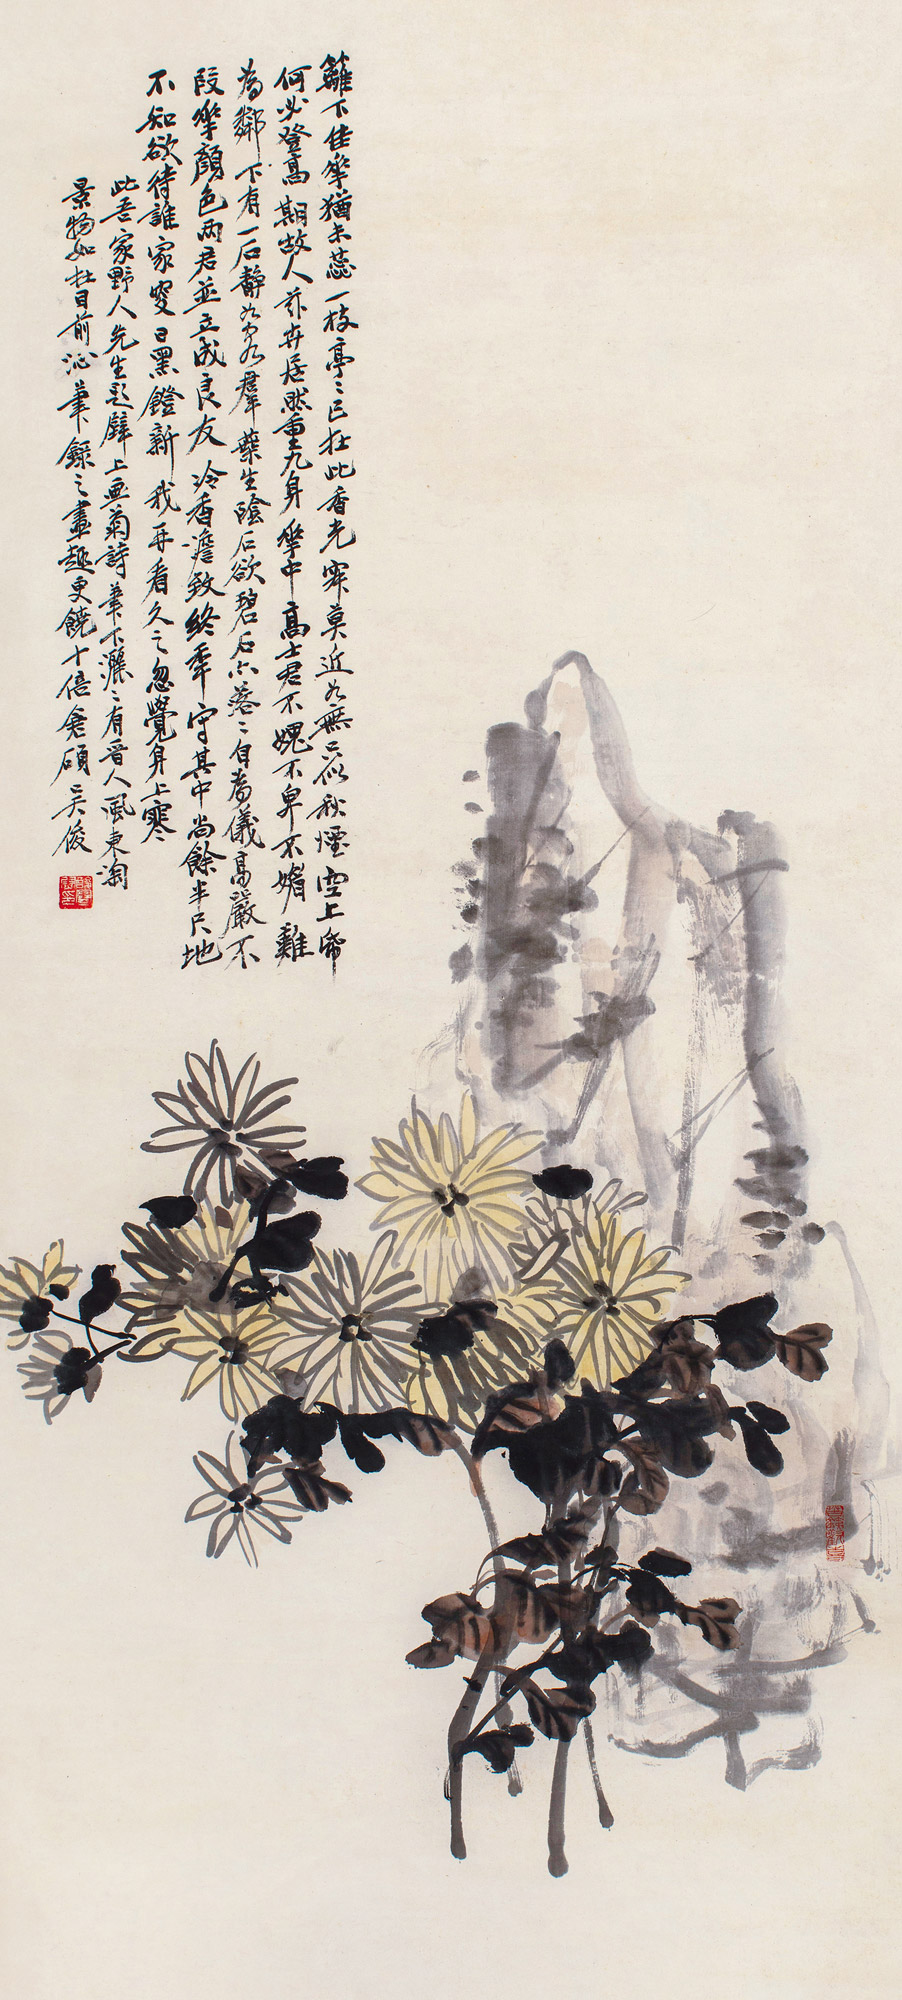 籬下佳華猶未蕊一枝亭〻已在此香光寂莫近如無只似秋煙空上帋
何必登高期故人茲卉居然重九身華中高士君不媿不卑不媚難
為鄰下有一石靜如如羣葉生陰石欲碧石亦落〻自為儀高嚴不
段華顏色兩君並立成良友冷香澹致終年守其中尚餘半尺地
不知欲待誰家叟日黑鐙新我再看久之忽覺身上寒
此吾家野人先生題壁上畫菊詩筆下灑〻有晉人風東淘
景物如在目前沁筆錄之畫趣更饒十倍倉碩吳俊